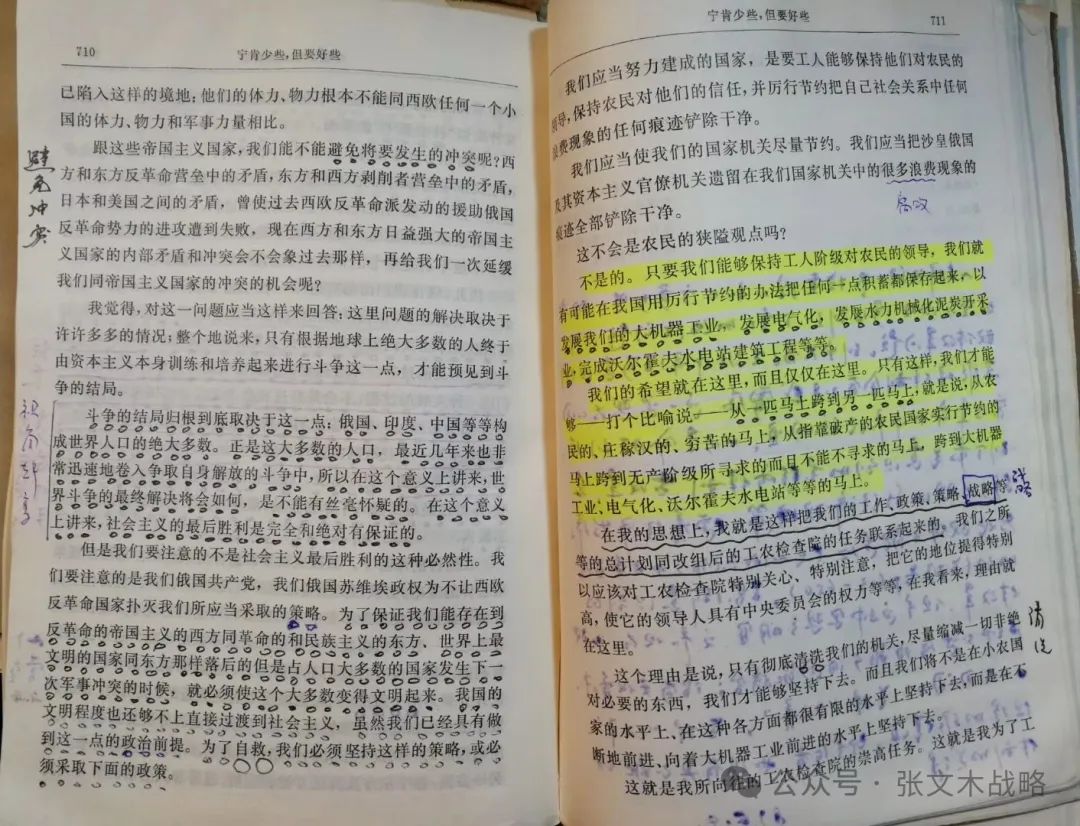 710
宁肯少些，但要好些
已陷入这样的境地：他们的体力、物力根本不能同西欧任何一个小
国的体力、物力和军事力量相比。
跟这些帝国主义国家，我们能不能避免将要发生的冲突呢？西
方和东方反革命营垒中的矛盾，东方和西方剥削者营垒中的矛盾，
日本和美国之间的矛盾，曾使过去西欧反革命派发动的援助俄国
反革命势力的进攻遭到失败，现在西方和东方日益强大的帝国主
义国家的内部矛盾和冲突会不会象过去那样，再给我们一次延缓
我们同帝国主义国家的冲突的机会呢？
我觉得，对这一问题应当这样来回答：这里问题的解决取决于
许许多多的情况；整个地说来，只有根据地球上绝大多数的人终于
由资本主义本身训练和培养起来进行斗争这一点，才能预见到斗
争的结局。
斗争的结局归根到底取决于这一点：俄国、印度、中国等等构
成世界人口的绝大多数。正是这大多数的人口，最近几年来也非
常迅速地卷入争取自身解放的斗争中，所以在这个意义上讲来，世
界斗争的最终解决将会如何，是不能有丝毫怀疑的。在这个意义
上讲来，社会主义的最后胜利是完全和绝对有保证的。
但是我们要注意的不是社会主义最后胜利的这种必然性。我
们要注意的是我们俄国共产党，我们俄国苏维埃政权为不让西欧
反革命国家扑灭我们所应当采取的策略。为了保证我们能存在到
反革命的帝国主义的西方同革命的和民族主义的东方、世界上最
文明的国家同东方那样落后的但是占人口大多数的国家发生下一
次军事冲突的时候，就必须使这个大多数变得文明起来。我国的
文明程度也还够不上直接过渡到社会主义，虽然我们已经具有做
到这一点的政治前提。为了自救，我们必须坚持这样的策略，或必
须采取下面的政策。
避免冲突
宁肯少些，但要好些
711
我们应当努力建成的国家，是要工人能够保持他们对农民的
领导，保持农民对他们的信任，并厉行节约把自己社会关系中任何
浪费现象的任何痕迹铲除干净。
我们应当使我们的国家机关尽量节约。我们应当把沙皇俄国
及其资本主义官僚机关遗留在我们国家机关中的很多浪费现象的
痕迹全部铲除干净。
这不会是农民的狭隘观点吗？
不是的。只要我们能够保持工人阶级对农民的领导，我们就
有可能在我国用厉行节约的办法把任何一点积蓄都保存起来，以
发展我们的大机器工业，发展电气化，发展水力机械化泥炭开采
业，完成沃尔霍夫水电站建筑工程等等。
我们的希望就在这里，而且仅仅在这里。只有这样，我们才能
够——打个比喻说——从一匹马上跨到另一匹马上，就是说，从农
民的、庄稼汉的、穷苦的马上，从指靠破产的农民国家实行节约的
马上跨到无产阶级所寻求的而且不能不寻求的马上，跨到大机器
工业、电气化、沃尔霍夫水电站等等的马上。
在我的思想上，我就是这样把我们的工作、政策、策略、战略等
等的总计划同改组后的工农检查院的任务联系起来的。我们之所
以应该对工农检查院特别关心、特别注意，把它的地位提得特别
高，使它的领导人具有中央委员会的权力等等，在我看来，理由就
在这里。
这个理由是说，只有彻底清洗我们的机关，尽量缩减一切非绝
对必要的东西，我们才能够坚持下去。而且我们将不是在小农国
家的水平上，在这种各方面都很有限的水平上坚持下去，而是在不
断地前进、向着大机器工业前进的水平上坚持下去。
这就是我所向往的工农检查院的崇高任务。这就是我为了工
清洗
公众号·张文木战略